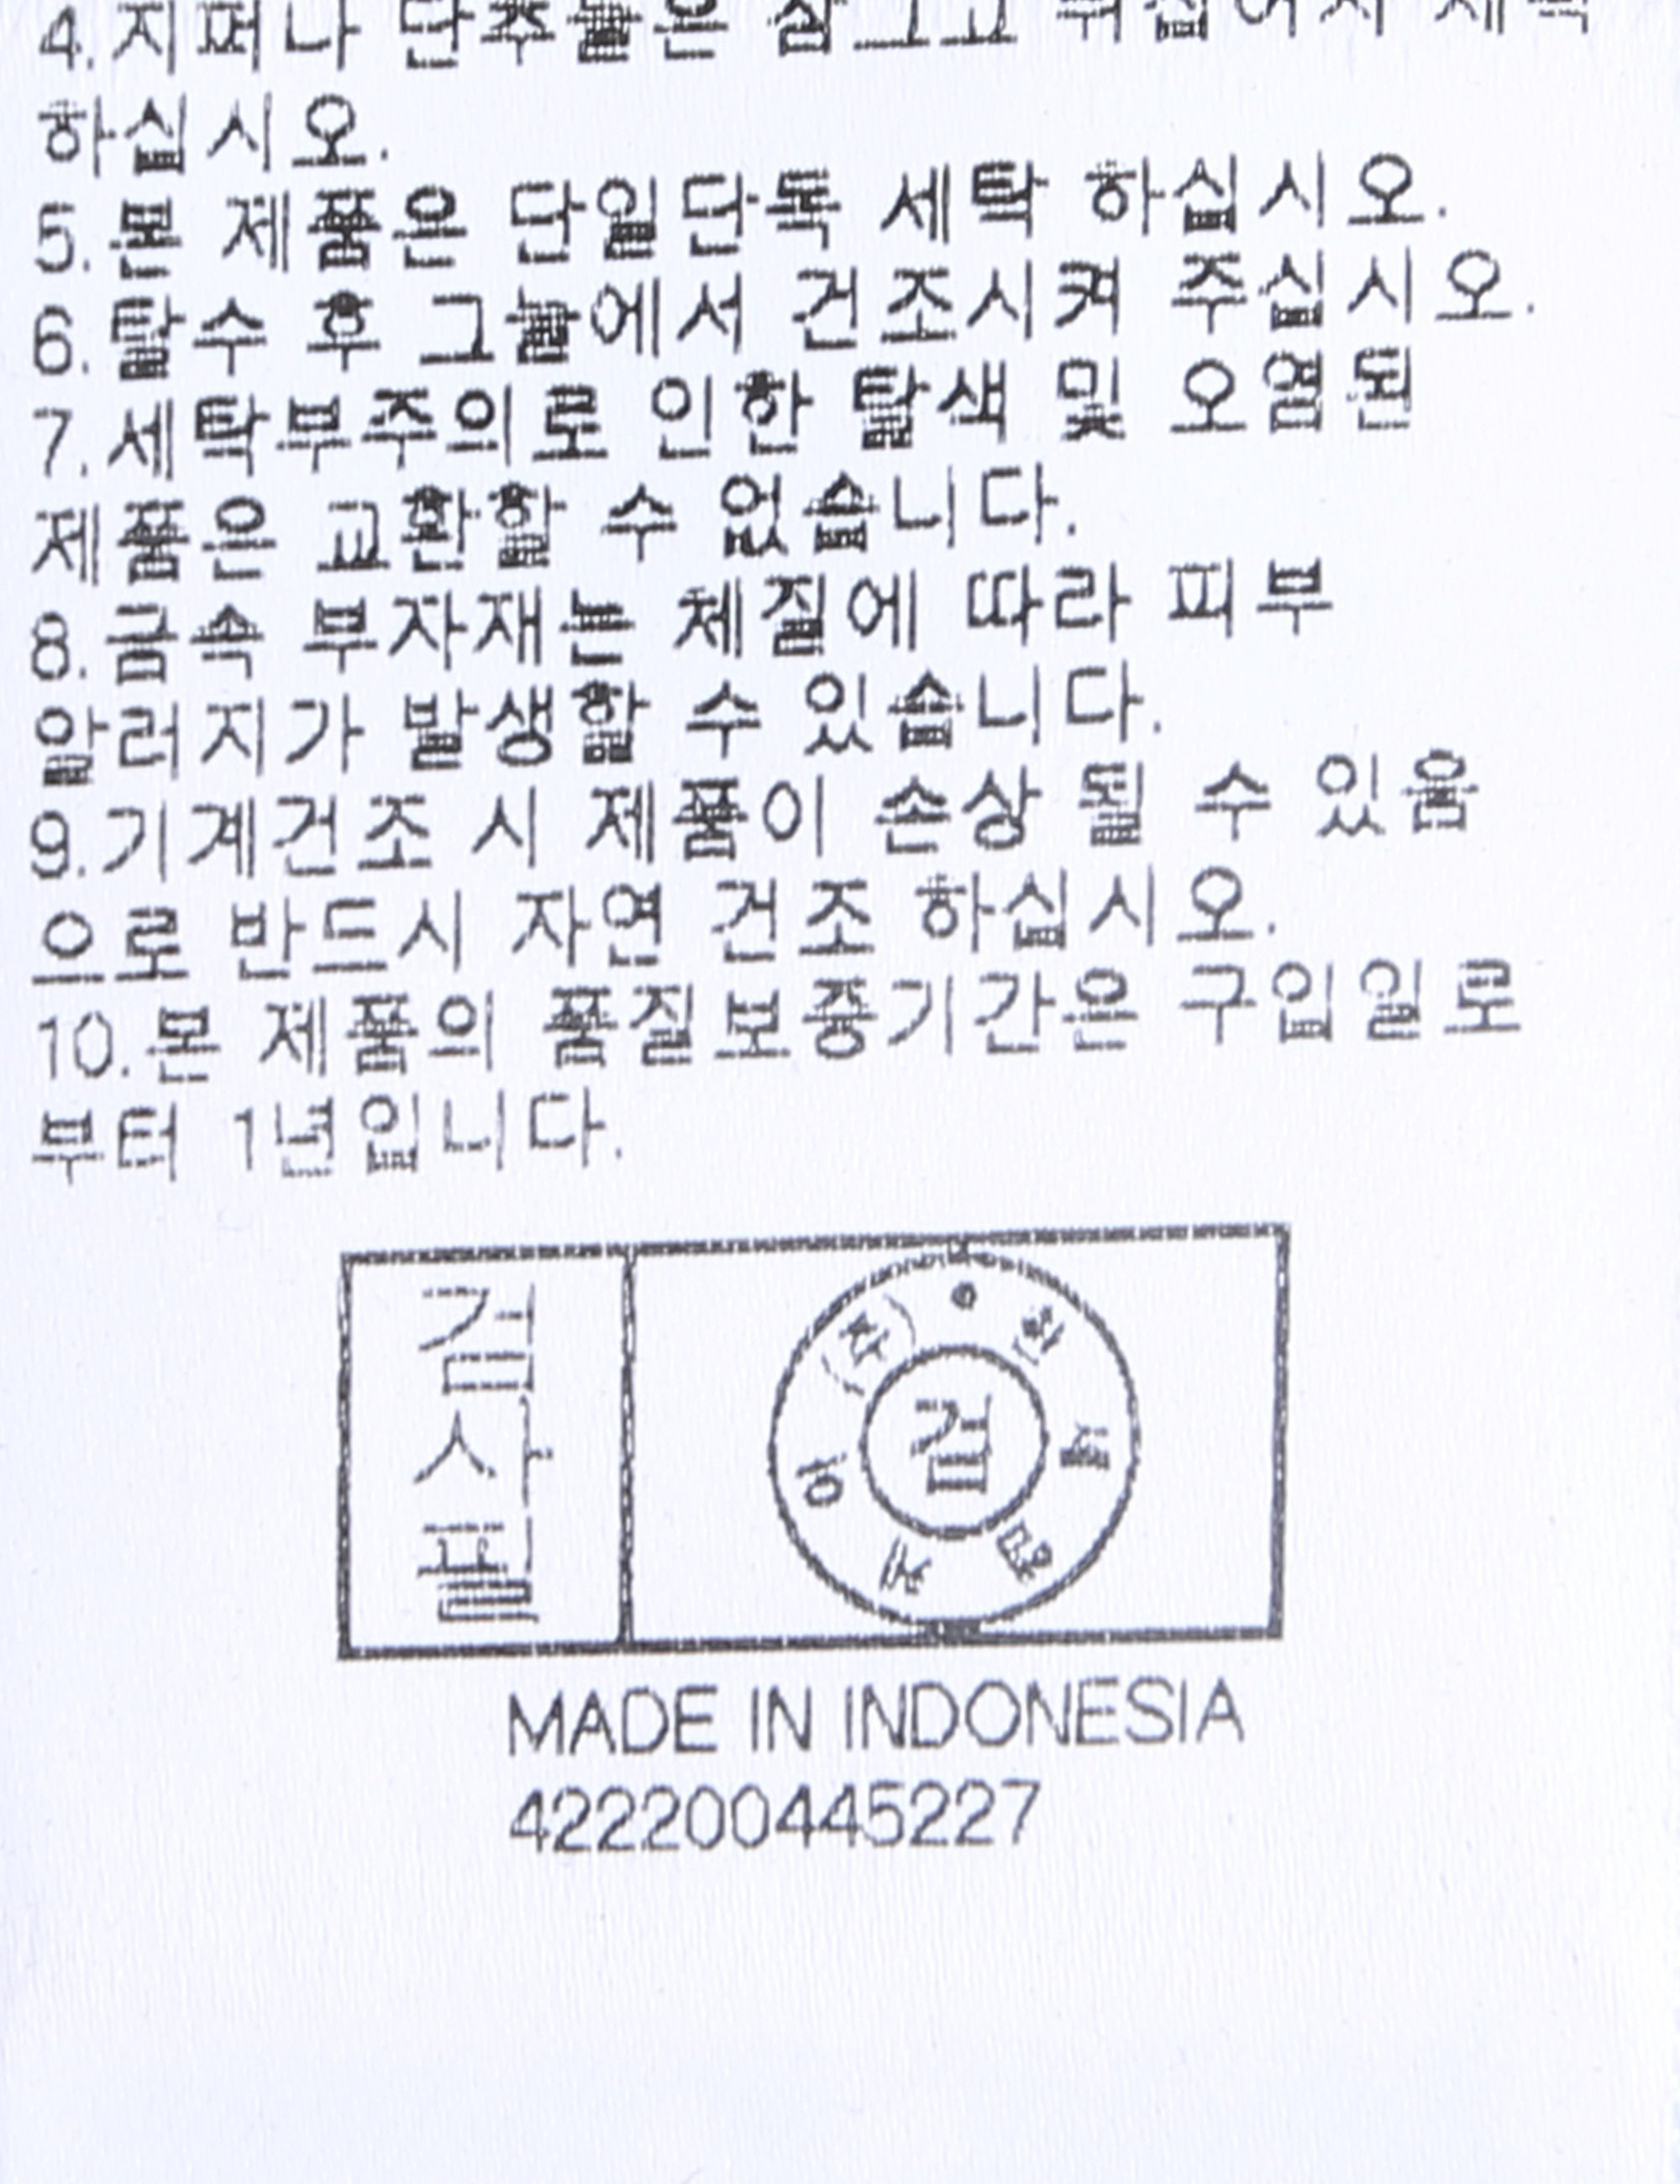 4.지퍼나 단추들은 잠그고 뒤집어서 세탁
하십시오.
5.본 제품은 단일단독 세탁 하십시오.
6.탈수 후 그늘에서 건조시켜 주십시오.
7.세탁부주의로 인한 탈색 및 오염된
제품은 교환할 수 없습니다.
8.금속 부자재는 체질에 따라 피부
알러지가 발생할 수 있습니다.
9.기계건조 시 제품이 손상 될 수 있음
으로 반드시 자연 건조 하십시오.
10.본 제품의 품질보증기간은 구입일로
부터 1년입니다.
검사필
검
MADE IN INDONESIA
422200445227